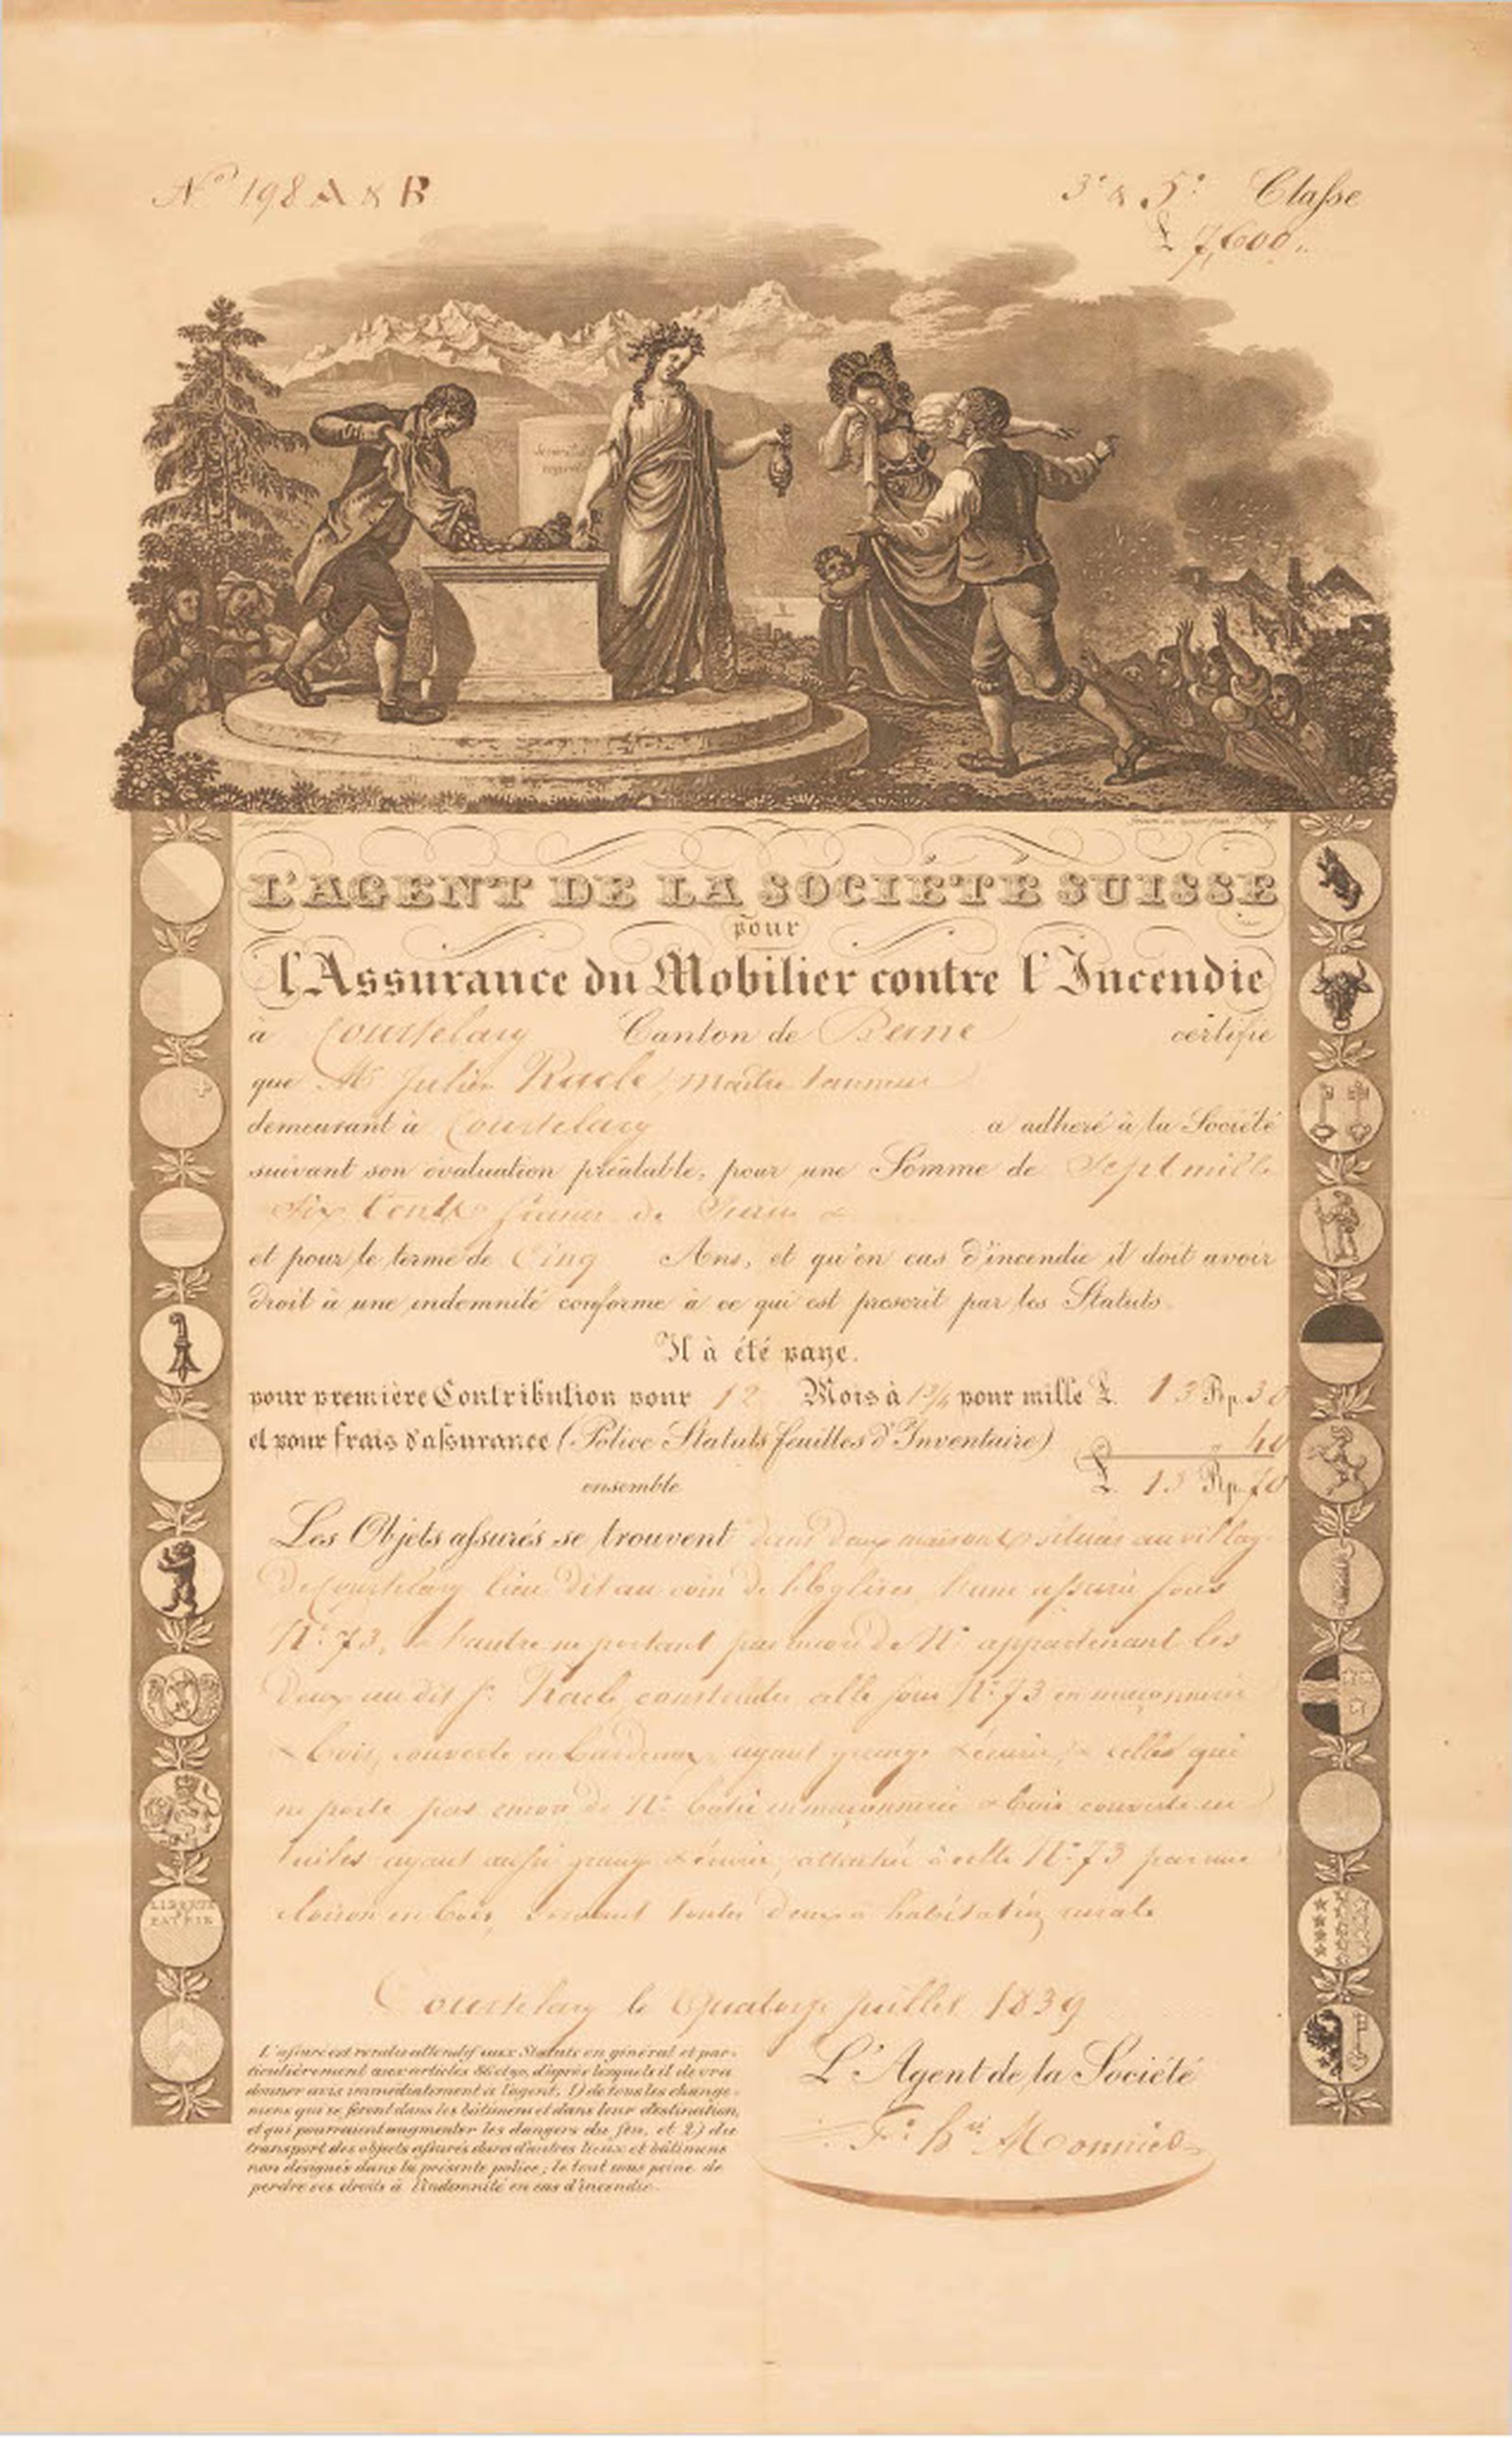 N° 198 A & B
3e & 5e Classe
£ 7,600.
L'AGENT DE LA SOCIÉTÉ SUISSE
pour
l'Assurance du Mobilier contre l'Incendie
à Courtelary Canton de Berne certifie
que Mr Julien Racle maître tanneur
demeurant à Courtelary a adheré à la Société
suivant son évaluation préalable, pour une Somme de Sept mille
Six Cents francs de Suisse
et pour le terme de Cinq Ans, et qu'en cas d'incendie il doit avoir
droit à une indemnité conforme à ce qui est prescrit par les Statuts.
Il à été paye.
pour première Contribution pour 12 Mois à 1 3/4 pour mille £. 13 Rp. 30
et pour frais d'assurance (Police Statuts feuilles d'Inventaire) " 40
ensemble £. 13 Rp. 70
Les Objets assurés se trouvent dans deux maisons situées au village
de Courtelary lieu dit au coin de l'Eglise, l'une assurée sous
N° 73, & l'autre ne portant pas encore de N° appartenant les
deux au dit Sr Racle construites celle sous N° 73 en maçonnerie
& bois, couverte en bardeaux, ayant grange & écurie, & celle qui
ne porte pas encore de N° batie en maçonnerie & bois couverte en
tuiles ayant aussi grange & écurie, attachée à celle N° 73 par une
cloison en bois, servant toutes deux à habitation rurale
Courtelary le Quatorze juillet 1839
L'assuré est rendu attentif aux Statuts en général et par-
ticulièrement aux articles 86 et 90, d'après lesquels il devra
donner avis immédiatement à l'agent, 1) de tous les change-
mens qui se feront dans les bâtimens et dans leur destination,
et qui pourraient augmenter les dangers du feu, et 2) du
transport des objets assurés dans d'autres lieux et bâtimens
non designés dans la présente police; le tout sous peine de
perdre ses droits à l'indemnité en cas d'incendie.
L'Agent de la Société
LIBERTÉ
ET
PATRIE